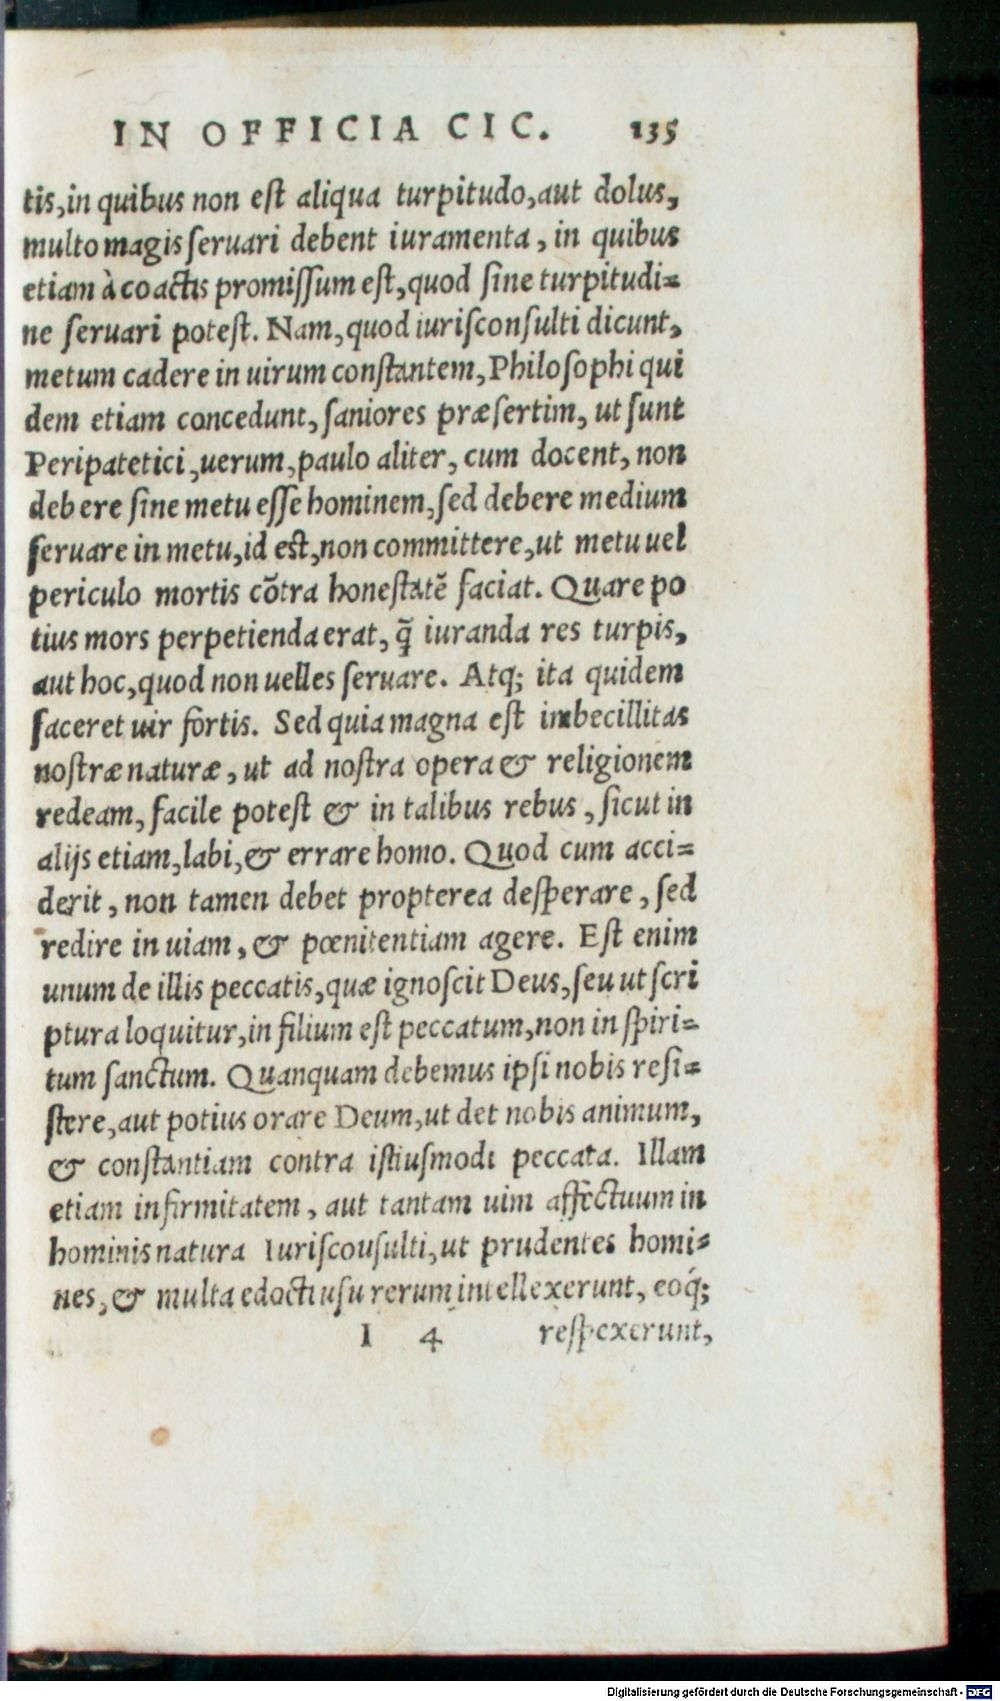 IN OFFICIA CIC. 135
tis, in quibus non est aliqua turpitudo, aut dolus,
multo magis seruari debent iuramenta, in quibus
etiam à coactis promissum est, quod sine turpitudi=
ne seruari potest. Nam, quod iurisconsulti dicunt,
metum cadere in uirum constantem, Philosophi qui
dem etiam concedunt, saniores præsertim, ut sunt
Peripatetici, uerum, paulo aliter, cum docent, non
debere sine metu esse hominem, sed debere medium
seruare in metu, id est, non committere, ut metu uel
periculo mortis cōtra honestatē faciat. Quare po
tius mors perpetienda erat, q̃ iuranda res turpis,
aut hoc, quod non uelles seruare. Atq; ita quidem
faceret uir fortis. Sed quia magna est imbecillitas
nostræ naturæ, ut ad nostra opera & religionem
redeam, facile potest & in talibus rebus, sicut in
alijs etiam, labi, & errare homo. Quod cum acci=
derit, non tamen debet propterea desperare, sed
redire in uiam, & pœnitentiam agere. Est enim
unum de illis peccatis, quæ ignoscit Deus, seu ut scri
ptura loquitur, in filium est peccatum, non in spiri=
tum sanctum. Quanquam debemus ipsi nobis resi=
stere, aut potius orare Deum, ut det nobis animum,
& constantiam contra istiusmodi peccata. Illam
etiam infirmitatem, aut tantam uim affectuum in
hominis natura Iuriscousulti, ut prudentes homi=
nes, & multa edocti usu rerum intellexerunt, eoq́;
I 4 respexerunt,
Digitalisierung gefördert durch die Deutsche Forschungsgemeinschaft - DFG